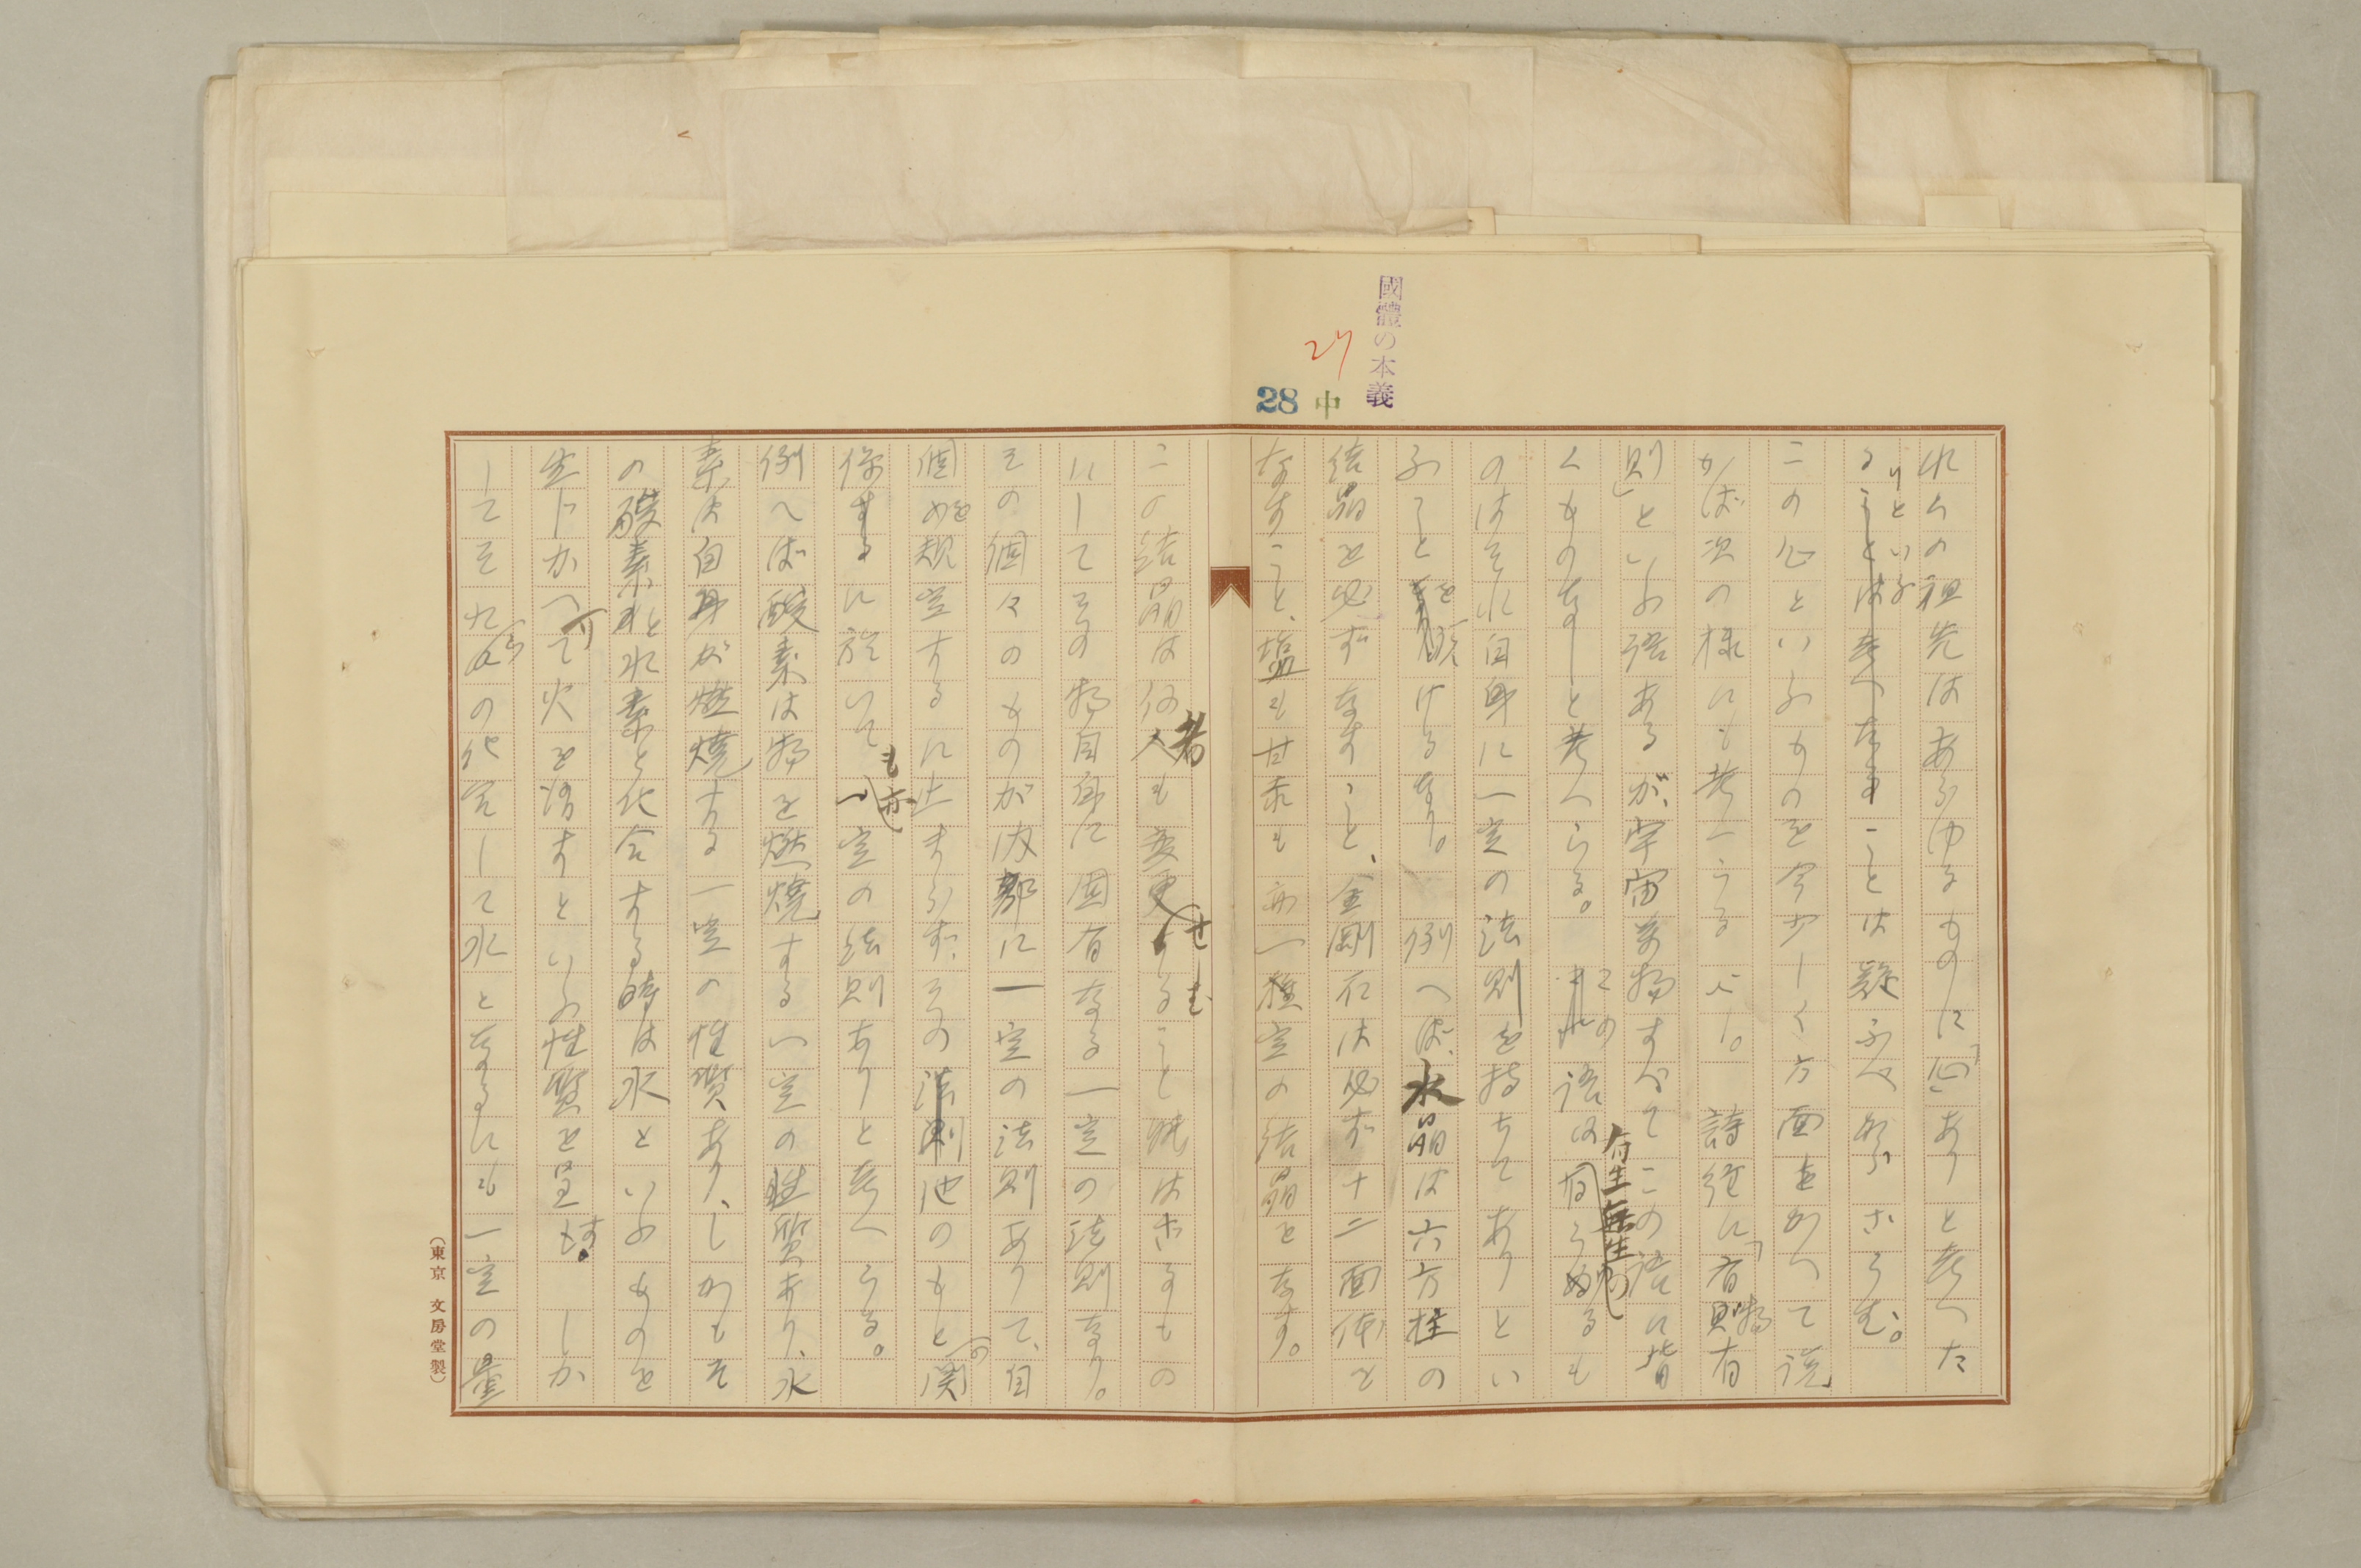 國體の本義
27
28 中
れらの祖先はあらゆるものに「心」ありと考へた
りといふことは疑ふべからざらむ。
この心といふものを今少しく方面をかへて説
かば次の様にも考へうるべし。詩経に「有物有
則」といふ語あるが、宇宙万物すべてこの語に皆
くものなしと考へらる。この語は有生無生の
のはそれ自身に一定の法則を持ちてありとい
ふことを 例へば、水晶は六方柱の
結晶を必ずなすこと、金剛石は必ず十二面体を
なすこと、塩も甘汞も亦一種定の結晶をなす。
この結晶は何者も変更せしむること能はざるもの
にしてその物自身に固有なる一定の法則なり。
その個々のものが内部に一定の法則ありて、自
個を規定するに止まらず、その他のものとの関
係に於いても亦一定の法則ありと考へうる。
例へば酸素は物を燃焼する一定の性質あり、水
素は自身が燃焼する一定の性質あり、しかもそ
の酸素と水素と化合する時は水といふものを
生じかへりて火を消すといふ性質を呈す。しか
してそれらの化合して水となるにも一定の量
（東京 文房堂製）